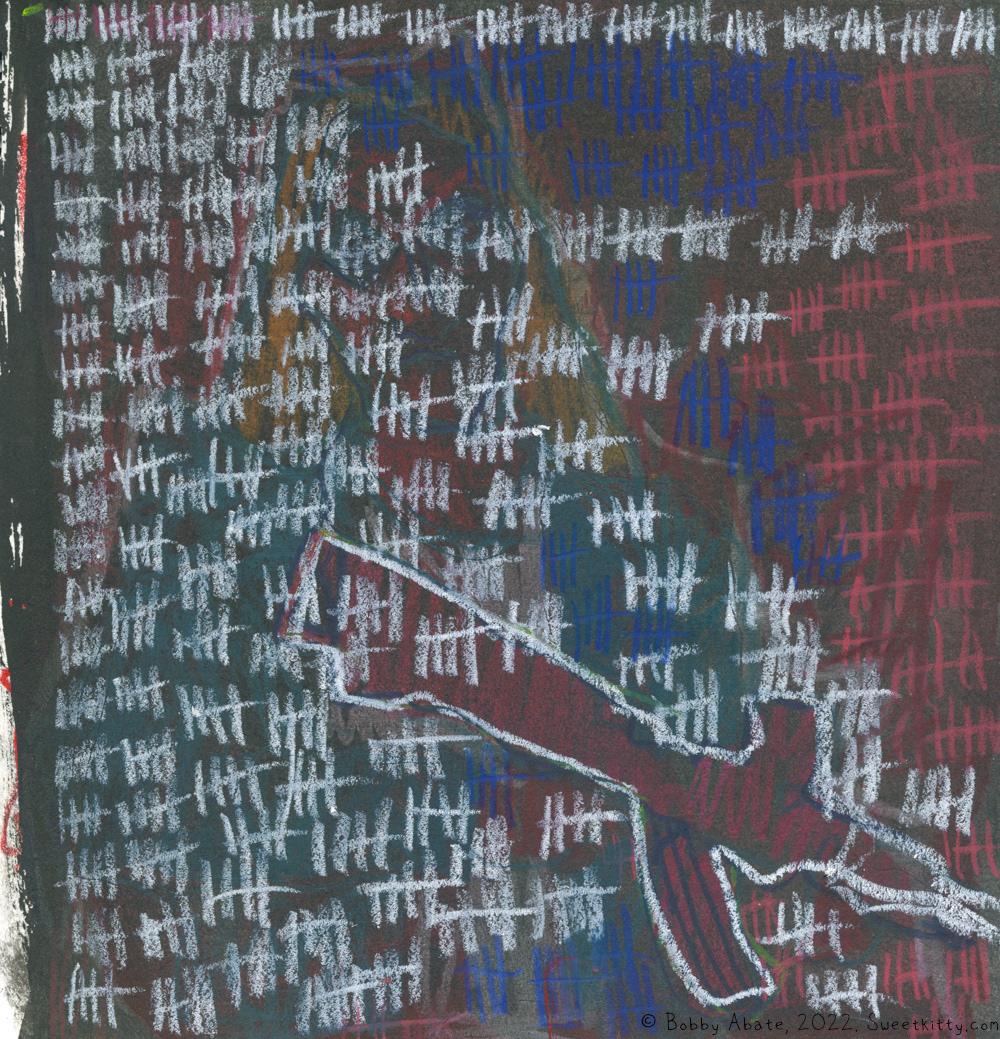 © Bobby Abate, 2022. Sweetkitty.com